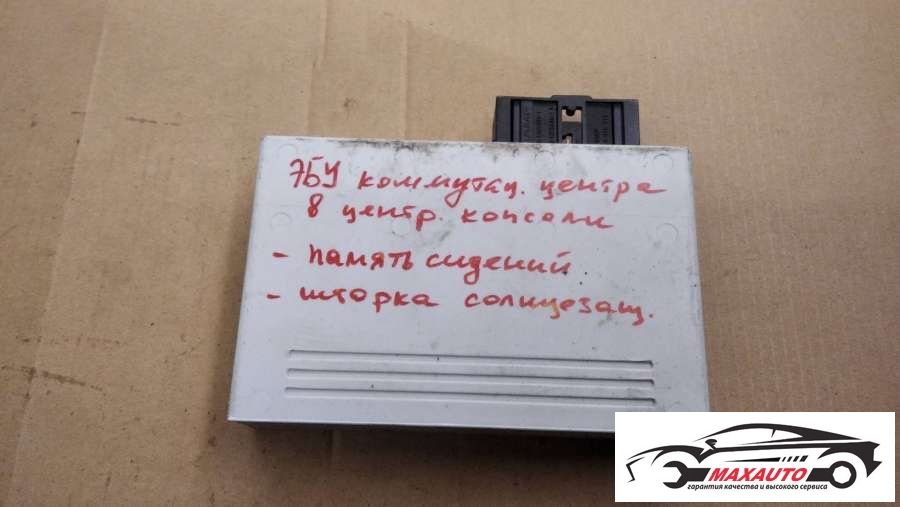 ЭБУ коммутац. центра
в центр. консоли
- память сидений
- шторка солнцезащ.
MAXAUTO
гарантия качества и высокого сервиса